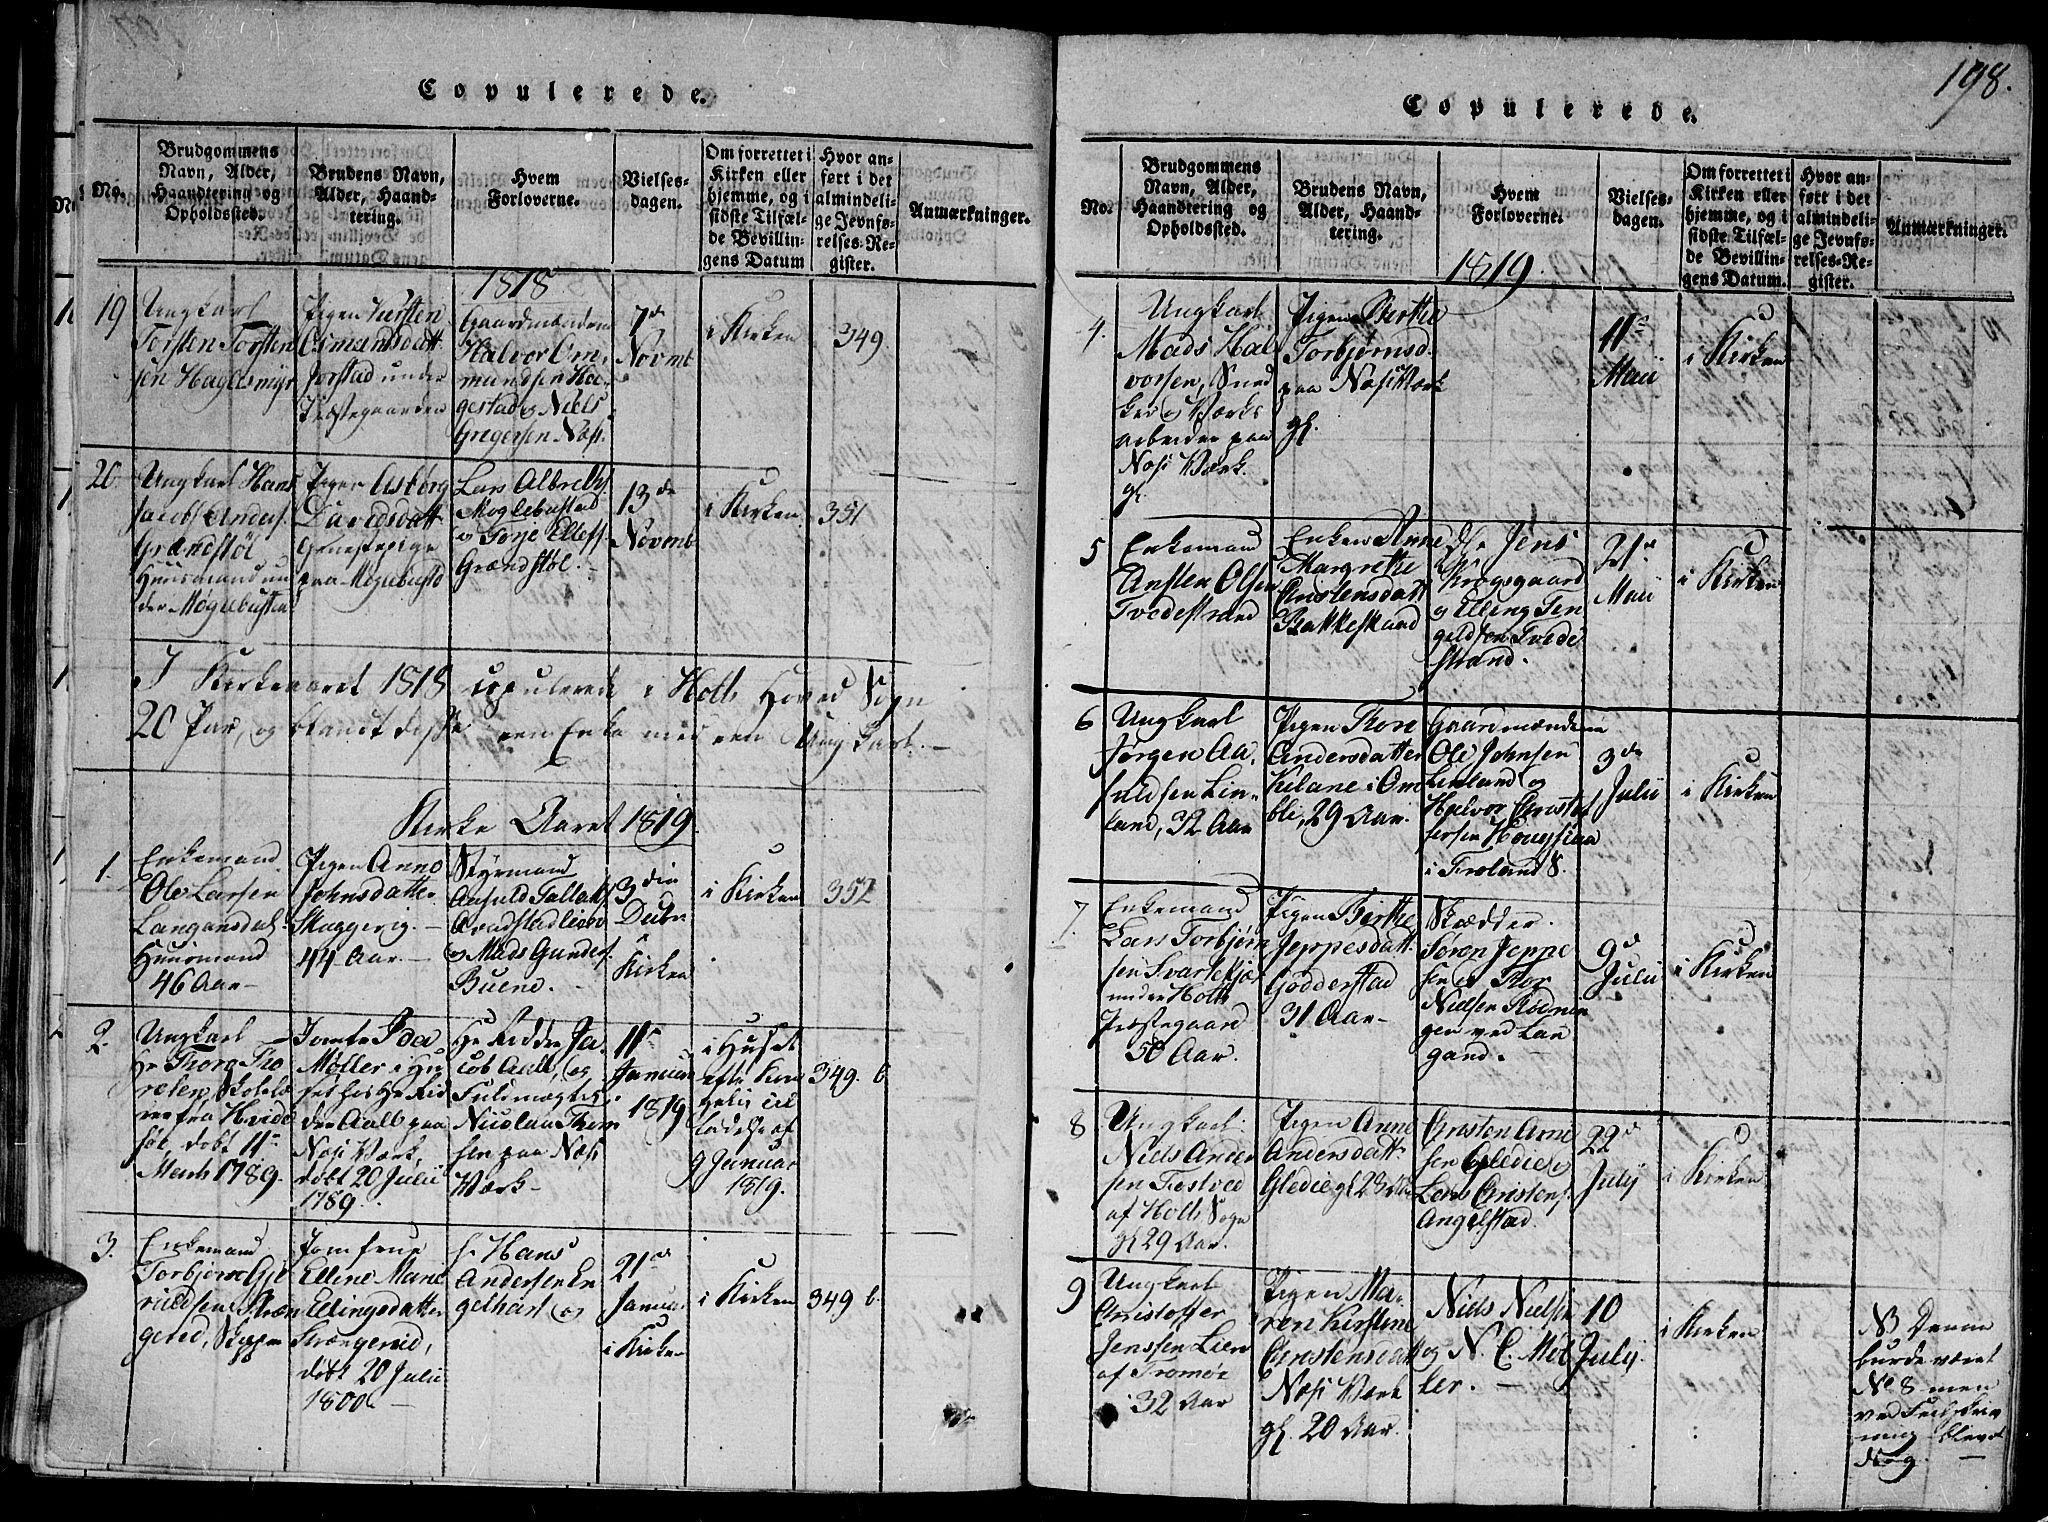 Copulerede.
No.
Brudgommens
Navn, Alder,
Haandtering og
Opholdssted.
Brudens Navn,
Alder, Haand-
tering.
Hvem
Forloverne.
Vielses-
dagen.
Om forrettet i
Kirken eller
hjemme, og i
sidste Tilfæl-
de Bevillin-
gens Datum
Hvor an-
ført i det
almindeli-
ge Jevnfø-
relses-Re-
gister.
Anmærkninger.
1818.
19
Ungkarl
Torsten Torsten
sen Haglesmyr
Pigen Kirsten
Osmundsdatt.
Jorstad under
Præstegaarden
Gaardmændene
Halvor Om
mundsen Ha-
gestad og Niels
Gregersen Næs.
7de
Novmb
i Kirken
349
20
Ungkarl Hans
Jacob Anders.
Grændstøl
Huusmand un
der Møglebustad
Pigen Asbørg
Davidsdatt
Tienestepige
paa Møglebustd
Lars Albreths.
Moglebustad
og Terje Ellefs.
Grændstøl.
13de
Novemb
i Kirken
351
I Kirkeaaret 1818 copulerede i Holts Hoved Sogn
20 Par, og blandt disse een Enke med een Ungkarl.
Kirke Aaret 1819.
1.
Enkemand
Ole Larsen
Langansdal
Huusmand
46 Aar
Pigen Anne
Johnsdatter
Skuggevig.
44 Aar.
Styrmand
Anfuld Tallaks.
og Mads Gunders.
Buene.
3die
Decbr
Kirken
i Kirken
352
2.
Ungkarl
Hr Thore Tho
resen, Skolelæ
rer fra Hvide
søe, døbt 11te
Mart 1789.
Jomfr Ida
Møller i Hu
set hos Hr Rid
der Aall paa
Næs Værk,
døbt 20 Julii
1789.
Hr Ridder Ja
cob Aall, og
Fuldmægtig
Nicolai Thom
sen paa Næs
Værk
11te
Januar
1819
i Huset
efter Kon
gelig til
ladelse af
9 Januar
1819.
349. b
3.
Enkemand
Torbjørn Gje
ruldsen Stræn
gered, Skipper
Jomfrue
Elline Marie
Ellingsdatter
Strængereid,
døbt 20 Julii
1800.
Hr Hans
Andersen En
gelhart og
21de
Januar
i Kirke
i Kirken
349 b.
198.
Copulerede.
No.
Brudgommens
Navn, Alder,
Haandtering og
Opholdssted.
Brudens Navn,
Alder, Haand-
tering.
Hvem
Forloverne.
Vielses-
dagen.
Om forrettet i
Kirken eller
hjemme, og i
sidste Tilfæl-
de Bevillin-
gens Datum.
Hvor an-
ført i det
almindeli-
ge Jevnfø-
relses-Re-
gister.
Anmærkninger.
1819.
4.
Ungkarl
Mads Hal
vorsen, Sned
ker og Værks
arbeider paa
Næs Værk.
gl.
Pigen Berthe
Torbjørnsd.
paa Næs Værk
gl.
11te
Maii
i Kirken
5
Enkemand
Ansten Olsen
Tvedestrand
Enken Anne
Margrethe
Christensdatt
Bakkeskaand
Hr Jens
Krogsgaard
og Elling Ten
geldsen Tvede
strand.
21de
Maii
i Kirken
6
Ungkarl
Jørgen Aa
suldsen Lin-
land, 32 Aar
Pigen Thon
Andersdatter
Kilane i Om
bli, 29 Aar.
Gaardmændene
Ole Johnsen
Linland og
Halvor Christof
fersen Hougsiaa
i Froland S.
3de
Julii
i Kirken
7.
Enkemand
Lars Torbjørn
sen Svartekjær
under Holts
Præstegaard
50 Aar.
Pigen Birthe
Jeppesdatt.
Godderstad
31 Aar
Skrædder
Søren Jeppe
sen og Thor
Nielsen Rødnin
gen ved Lan
gand.
9de
Julii
i Kirken
8
Ungkarl
Niels Ander
sen Testved
af Holts Sogn
gl. 29 Aar.
Pigen Anne
Andersdatt
Gledie gl. 23 Aar
Christen Arne
sen Gledie og
Lars Christens.
Angelstad.
22de
July
i Kirken
9
Ungkarl
Christoffer
Jenssen Lien
af Tromøe
32 Aar
Pigen Ma-
ren Kirstine
Christensdatt
Næs Værk
gl. 20 Aar.
Niels Nielsen
og N. C. Møl
ler.
10
July.
i Kirken
NB Denne
burde været
No 8 men
ved Feilskriv
ning blevet